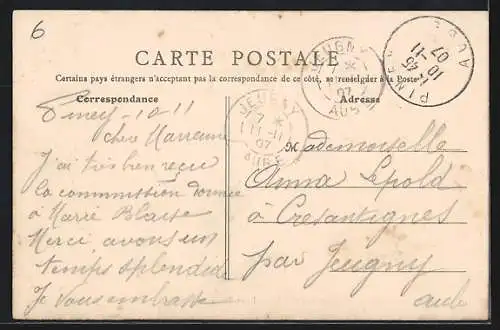 6
CARTE POSTALE
Certains pays étrangers n'acceptant pas la correspondance de ce côté, se renseigner à la Poste
Correspondance
Adresse
PINEY
7-45
10-11
07
AUBE
JEUGNY
7 *
11-11
07
AUBE
JEUGNY
7 *
11-11
07
AUBE
Piney-10-11
chère Marraine
J'ai très bien reçu
la commission donnée
à Marie Blaise
Merci, avons un
temps splendide
Je vous embrasse
Mademoiselle
Anna Lepold
à Cresantignes
par Jeugny
aube